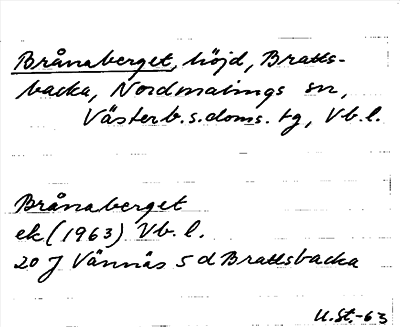 Brånaberget, höjd, Bratts-
backa, Nordmalings sn,
Västerb. s. doms. tg, Vb. l.
Brånaberget
ek (1963) Vb. l.
20 J Vännäs S d Brattsbacka
U.St.-63